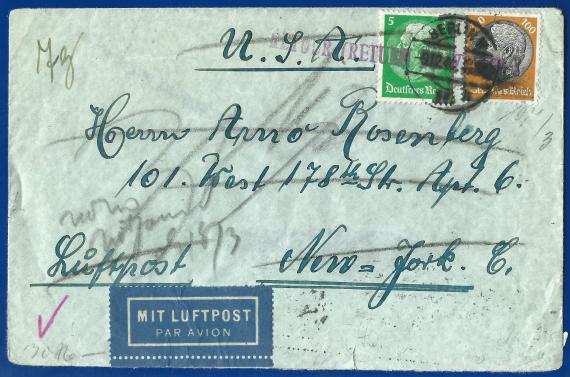 U. S. A.
5
100
Deutsches Reich
Deutsches Reich
BERLIN
RETOUR
Herrn Arno Rosenberg
101. West 178th Str. Apt. 6.
Luftpost
New=York. C.
MIT LUFTPOST
PAR AVION